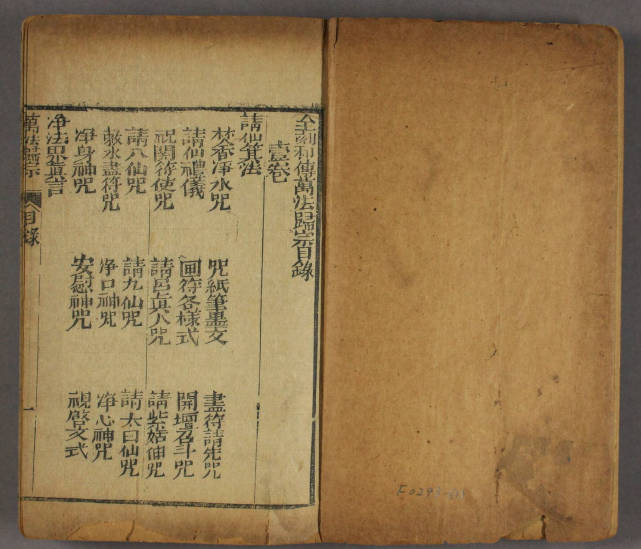 全⬚祕傳萬法歸宗目錄
壹卷
請仙箕法
焚香淨水咒 咒紙筆墨文 書符請先咒
請仙禮儀 画符各樣式 開壇召斗咒
祝開符使咒 請呂真人咒 請紫姑神咒
請八仙咒 請九仙咒 請太白仙咒
敕水畫符咒 净口神咒 淨心神咒
净身神咒 安慰神咒 視啓文式
净法界真言
萬法歸宗 目錄 一
F029